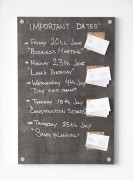 "IMPORTANT DATES"
→ FRIDAY 20TH JUNE
"BUSINESS MEETING"
→ MONDAY 23TH JUNE
"LUKE'S BIRTHDAY"
→ WEDNESDAY 4TH JULY
→ TUESDAY 10TH JULY
"CONSTRUCTION SCHOOL"
→ THURSDAY 25TH JULY
"SALES PLANNING"